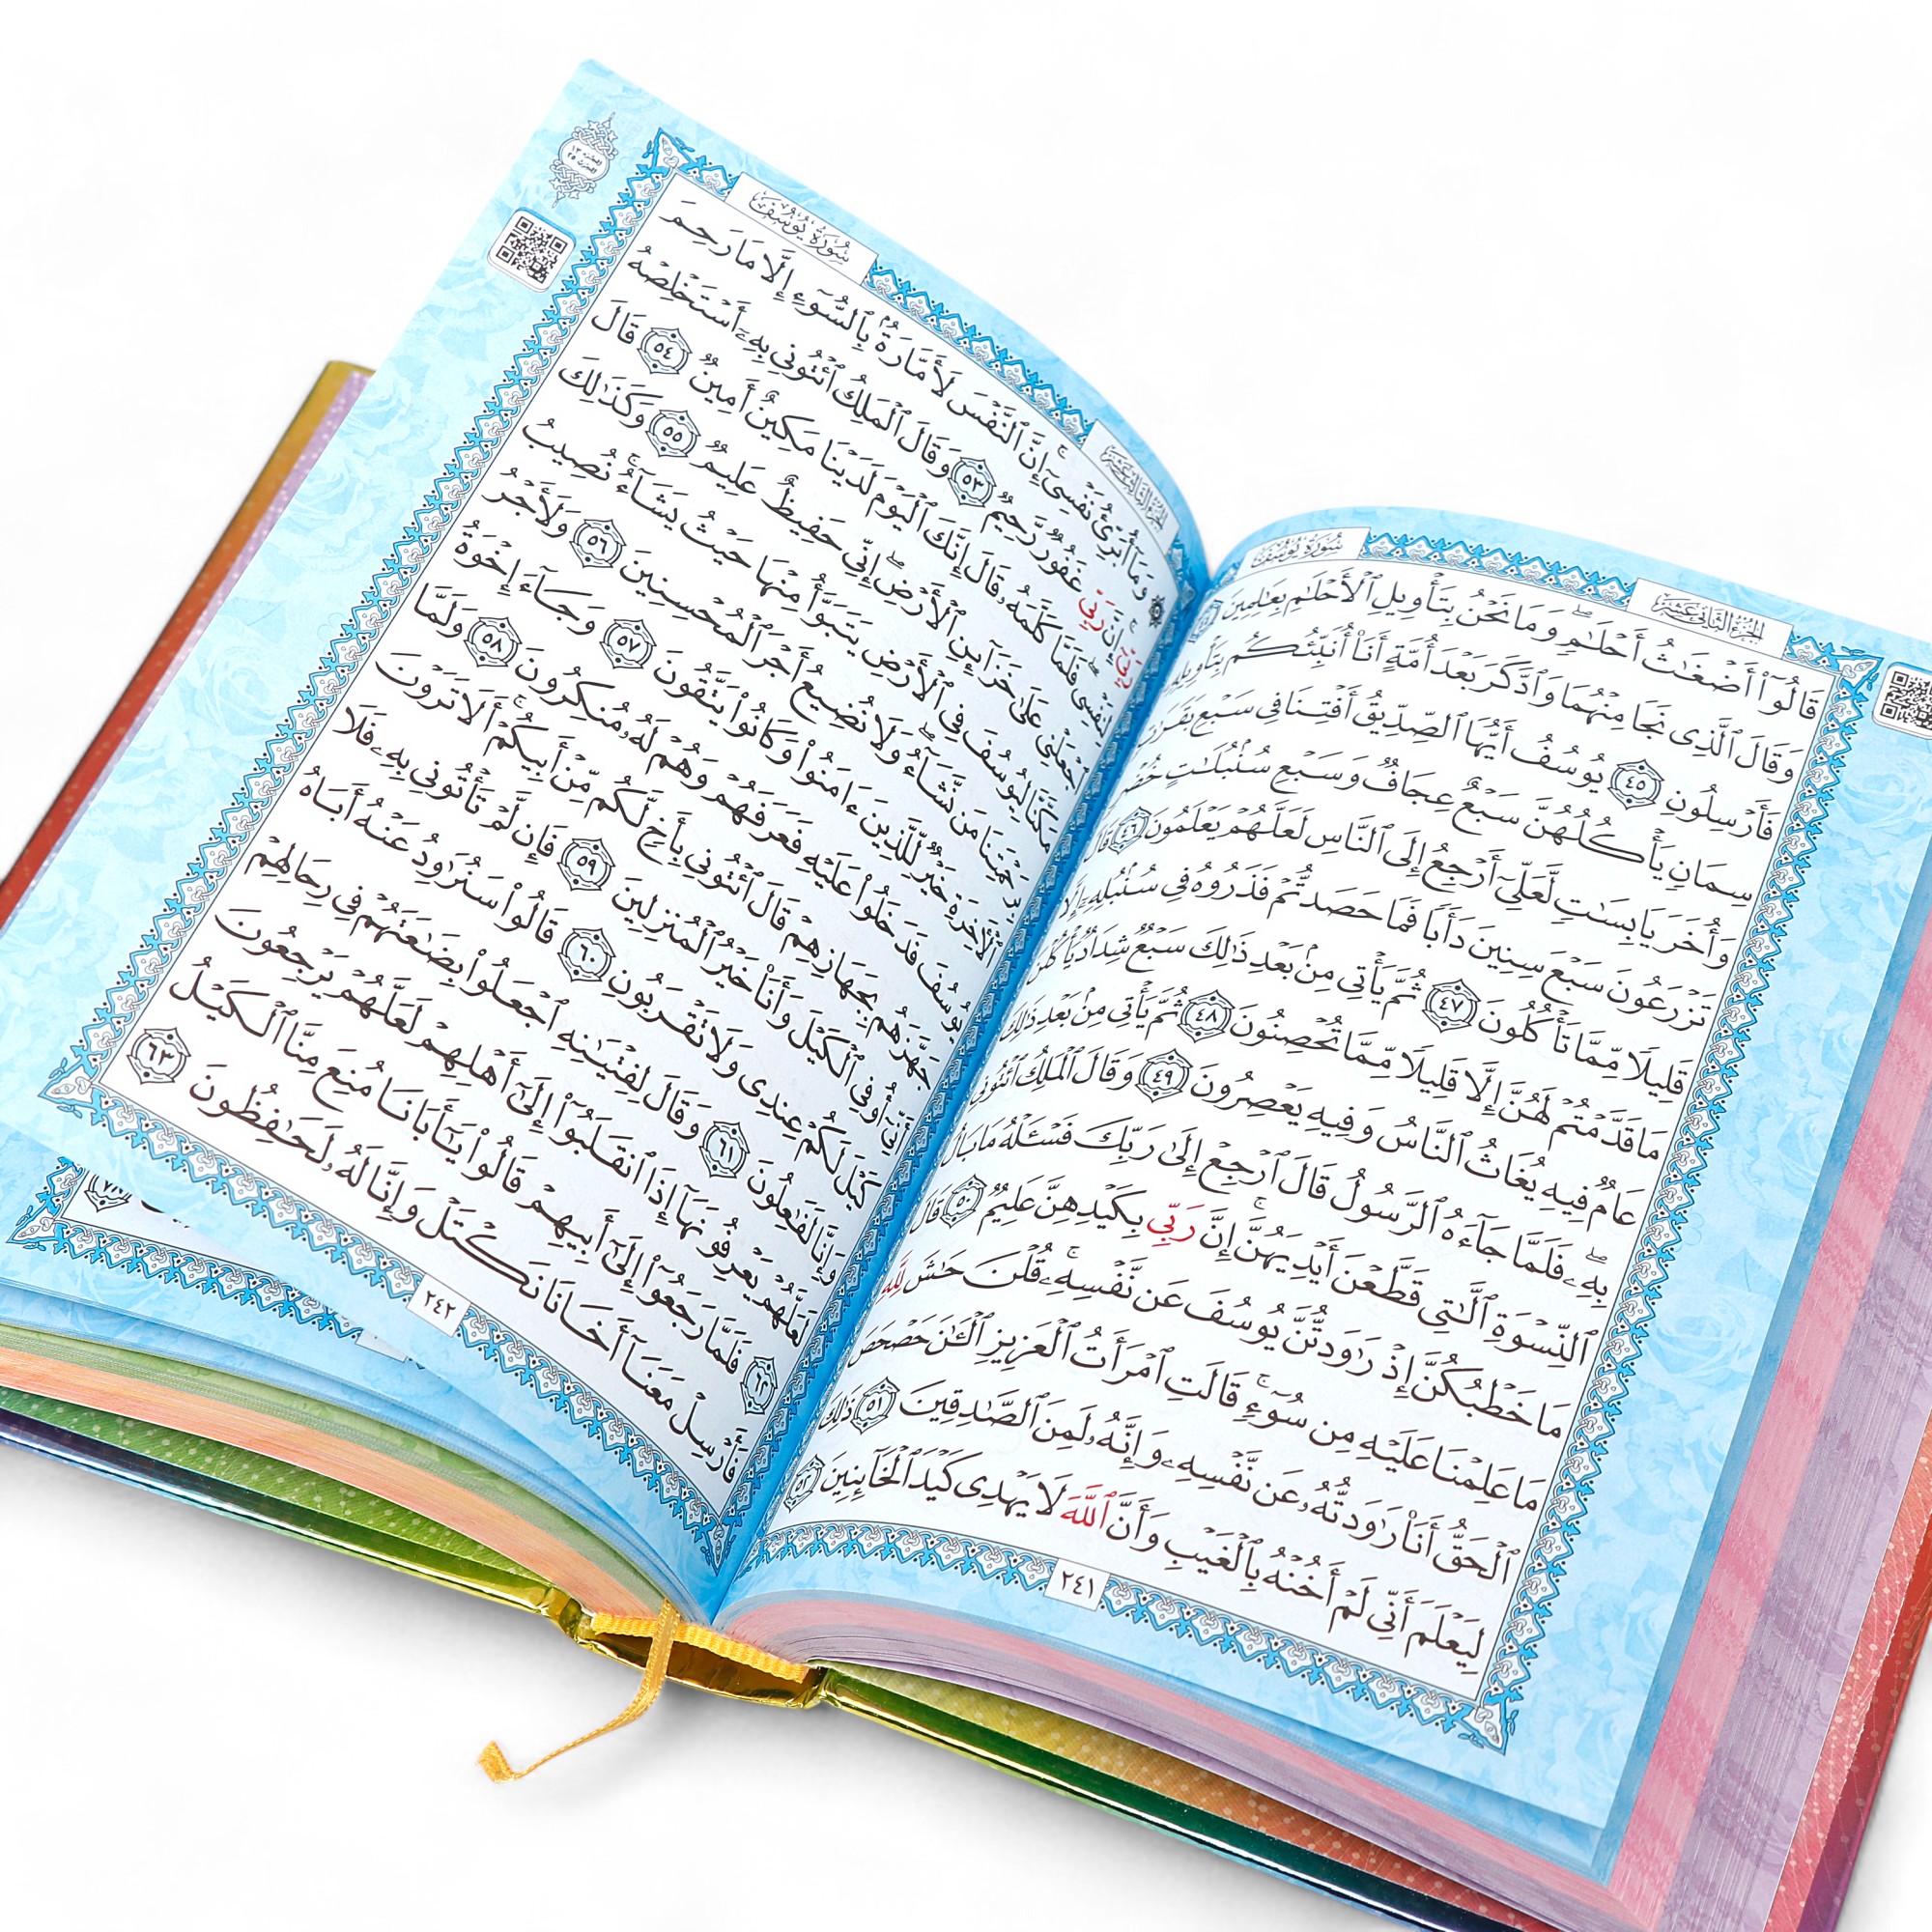 سُورَةُ يُوسُفَ
الجزء الثاني عشر
قَالُوٓاْ أَضۡغَٰثُ أَحۡلَٰمٖۖ وَمَا نَحۡنُ بِتَأۡوِيلِ ٱلۡأَحۡلَٰمِ بِعَٰلِمِينَ
وَقَالَ ٱلَّذِي نَجَا مِنۡهُمَا وَٱدَّكَرَ بَعۡدَ أُمَّةٍ أَنَا۠ أُنَبِّئُكُم بِتَأۡوِيلِهِۦ
فَأَرۡسِلُونِ ٤٥ يُوسُفُ أَيُّهَا ٱلصِّدِّيقُ أَفۡتِنَا فِي سَبۡعِ بَقَرَٰتٖ
سِمَانٖ يَأۡكُلُهُنَّ سَبۡعٌ عِجَافٞ وَسَبۡعِ سُنۢبُلَٰتٍ خُضۡرٖ
وَأُخَرَ يَابِسَٰتٖ لَّعَلِّيٓ أَرۡجِعُ إِلَى ٱلنَّاسِ لَعَلَّهُمۡ يَعۡلَمُونَ ٤٦ قَالَ
تَزۡرَعُونَ سَبۡعَ سِنِينَ دَأَبٗا فَمَا حَصَدتُّمۡ فَذَرُوهُ فِي سُنۢبُلِهِۦٓ إِلَّا
قَلِيلٗا مِّمَّا تَأۡكُلُونَ ٤٧ ثُمَّ يَأۡتِي مِنۢ بَعۡدِ ذَٰلِكَ سَبۡعٞ شِدَادٞ يَأۡكُلۡنَ
مَا قَدَّمۡتُمۡ لَهُنَّ إِلَّا قَلِيلٗا مِّمَّا تُحۡصِنُونَ ٤٨ ثُمَّ يَأۡتِي مِنۢ بَعۡدِ ذَٰلِكَ
عَامٞ فِيهِ يُغَاثُ ٱلنَّاسُ وَفِيهِ يَعۡصِرُونَ ٤٩ وَقَالَ ٱلۡمَلِكُ ٱئۡتُونِي
بِهِۦۖ فَلَمَّا جَآءَهُ ٱلرَّسُولُ قَالَ ٱرۡجِعۡ إِلَىٰ رَبِّكَ فَسۡـَٔلۡهُ مَا بَالُ
ٱلنِّسۡوَةِ ٱلَّٰتِي قَطَّعۡنَ أَيۡدِيَهُنَّۚ إِنَّ رَبِّي بِكَيۡدِهِنَّ عَلِيمٞ ٥٠ قَالَ
مَا خَطۡبُكُنَّ إِذۡ رَٰوَدتُّنَّ يُوسُفَ عَن نَّفۡسِهِۦۚ قُلۡنَ حَٰشَ لِلَّهِ
مَا عَلِمۡنَا عَلَيۡهِ مِن سُوٓءٖۚ قَالَتِ ٱمۡرَأَتُ ٱلۡعَزِيزِ ٱلۡـَٰٔنَ حَصۡحَصَ
ٱلۡحَقُّ أَنَا۠ رَٰوَدتُّهُۥ عَن نَّفۡسِهِۦ وَإِنَّهُۥ لَمِنَ ٱلصَّٰدِقِينَ ٥١ ذَٰلِكَ
لِيَعۡلَمَ أَنِّي لَمۡ أَخُنۡهُ بِٱلۡغَيۡبِ وَأَنَّ ٱللَّهَ لَا يَهۡدِي كَيۡدَ ٱلۡخَآئِنِينَ ٥٢
٢٤١
الجزء الثالث عشر
سُورَةُ يُوسُفَ
الجزء ١٣
الحزب ٢٥
۞ وَمَآ أُبَرِّئُ نَفۡسِيٓۚ إِنَّ ٱلنَّفۡسَ لَأَمَّارَةُۢ بِٱلسُّوٓءِ إِلَّا مَا رَحِمَ
رَبِّيٓۚ إِنَّ رَبِّي غَفُورٞ رَّحِيمٞ ٥٣ وَقَالَ ٱلۡمَلِكُ ٱئۡتُونِي بِهِۦٓ أَسۡتَخۡلِصۡهُ
لِنَفۡسِيۖ فَلَمَّا كَلَّمَهُۥ قَالَ إِنَّكَ ٱلۡيَوۡمَ لَدَيۡنَا مَكِينٌ أَمِينٞ ٥٤ قَالَ
ٱجۡعَلۡنِي عَلَىٰ خَزَآئِنِ ٱلۡأَرۡضِۖ إِنِّي حَفِيظٌ عَلِيمٞ ٥٥ وَكَذَٰلِكَ
مَكَّنَّا لِيُوسُفَ فِي ٱلۡأَرۡضِ يَتَبَوَّأُ مِنۡهَا حَيۡثُ يَشَآءُۚ نُصِيبُ
بِرَحۡمَتِنَا مَن نَّشَآءُۖ وَلَا نُضِيعُ أَجۡرَ ٱلۡمُحۡسِنِينَ ٥٦ وَلَأَجۡرُ
ٱلۡأٓخِرَةِ خَيۡرٞ لِّلَّذِينَ ءَامَنُواْ وَكَانُواْ يَتَّقُونَ ٥٧ وَجَآءَ إِخۡوَةُ
يُوسُفَ فَدَخَلُواْ عَلَيۡهِ فَعَرَفَهُمۡ وَهُمۡ لَهُۥ مُنكِرُونَ ٥٨ وَلَمَّا
جَهَّزَهُم بِجَهَازِهِمۡ قَالَ ٱئۡتُونِي بِأَخٖ لَّكُم مِّنۡ أَبِيكُمۡۚ أَلَا تَرَوۡنَ
أَنِّيٓ أُوفِي ٱلۡكَيۡلَ وَأَنَا۠ خَيۡرُ ٱلۡمُنزِلِينَ ٥٩ فَإِن لَّمۡ تَأۡتُونِي بِهِۦ فَلَا
كَيۡلَ لَكُمۡ عِندِي وَلَا تَقۡرَبُونِ ٦٠ قَالُواْ سَنُرَٰوِدُ عَنۡهُ أَبَاهُ
وَإِنَّا لَفَٰعِلُونَ ٦١ وَقَالَ لِفِتۡيَٰنِهِ ٱجۡعَلُواْ بِضَٰعَتَهُمۡ فِي رِحَالِهِمۡ
لَعَلَّهُمۡ يَعۡرِفُونَهَآ إِذَا ٱنقَلَبُوٓاْ إِلَىٰٓ أَهۡلِهِمۡ لَعَلَّهُمۡ يَرۡجِعُونَ
٦٢ فَلَمَّا رَجَعُوٓاْ إِلَىٰٓ أَبِيهِمۡ قَالُواْ يَٰٓأَبَانَا مُنِعَ مِنَّا ٱلۡكَيۡلُ
فَأَرۡسِلۡ مَعَنَآ أَخَانَا نَكۡتَلۡ وَإِنَّا لَهُۥ لَحَٰفِظُونَ ٦٣
٢٤٢